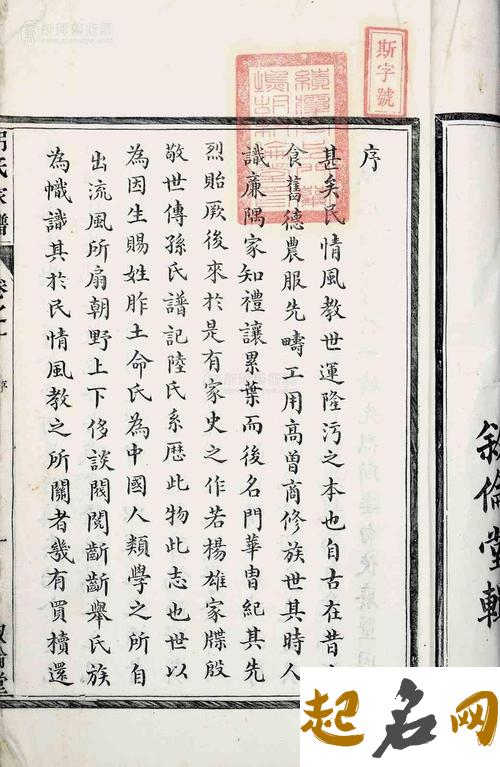 斯字號
敘倫堂輯
序
甚矣民情風教世運隆污之本也自古在昔
食舊德農服先疇工用高曾商修族世其時人
識廉隅家知禮讓累葉而後名門華胄紀其先
烈貽厥後來於是有家史之作若楊雄家牒殷
敬世傳孫氏譜記陸氏系歷此物此志也世以
為因生賜姓胙土命氏為中國人類學之所自
出流風所扇朝野上下侈談閥閱齗齗舉氏族
為幟識其於民情風教之所關者幾有買櫝還
氏家譜
卷之
序
一
起名网